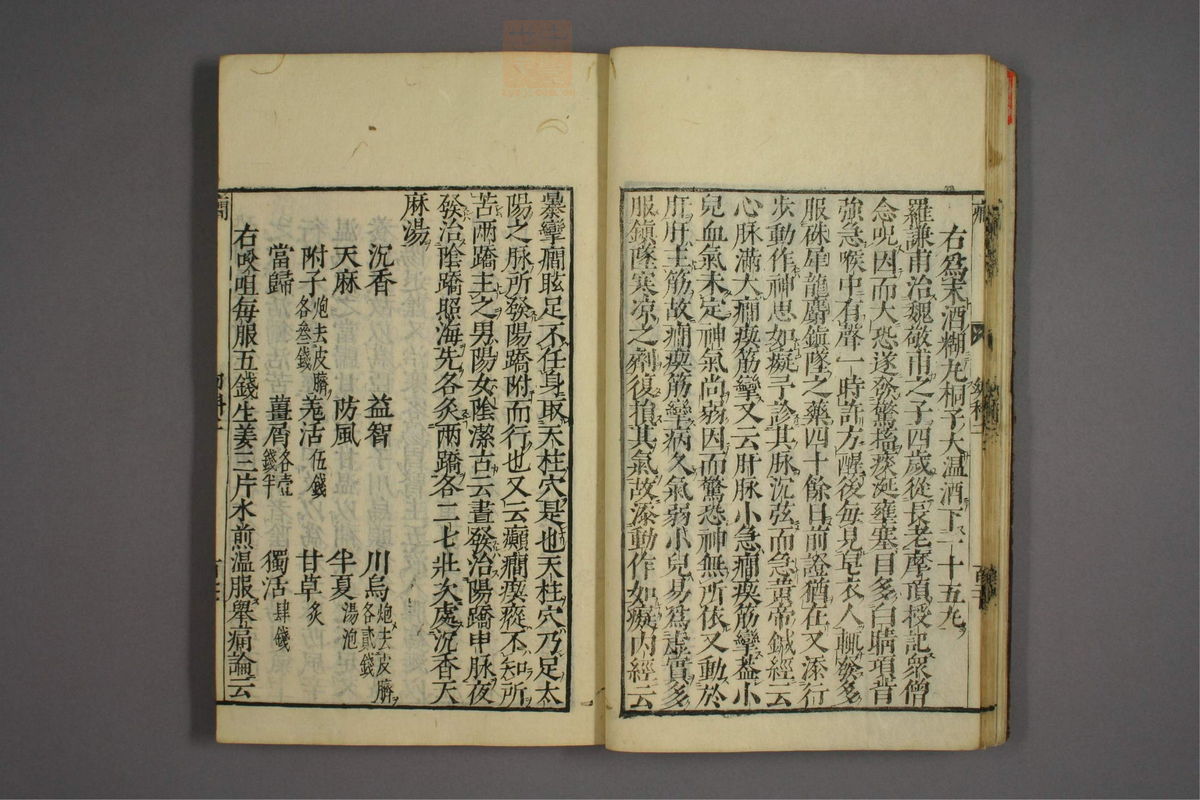 右爲末酒糊丸桐子大温酒下一十五丸
羅謙甫治魏敬甫之子四歲從長老摩頂授記衆僧
念呪因而大恐遂發驚搐痰涎壅塞目多白睛項背
強急喉中有聲一時許方醒後每見皂衣人輒發多
服硃犀龍麝鎮墜之藥四十餘日前證猶在又添行
步動作神思如癡予診其脉沉弦而急黄帝鍼經云
心脉滿大癇瘈筋攣又云肝脉小急癇瘈筋攣葢小
兒血氣未定神氣尚弱因而驚恐神無所依又動於
肝肝主筋故癇瘈筋攣病久氣弱小兒易爲虚實多
服鎮墜寒凉之劑復損其氣故添動作如癡内經云
暴攣癇眩足不任身取天柱穴是也天柱穴乃足太
陽之脉所發陽蹻附而行也又云癲癇瘈瘲不知所
苦兩蹻主之男陽女陰潔古云晝發治陽蹻申脉夜
發治陰蹻照海先各灸兩蹻各二七壯次處沉香天
麻湯
沉香 益智 川烏炮去皮臍各貳錢
天麻 防風 半夏湯泡
附子炮去皮臍各叁錢 羌活伍錢 甘草炙
當歸 薑屑各壹錢半 獨活肆錢
右㕮咀每服五錢生姜三片水煎温服舉痛論云